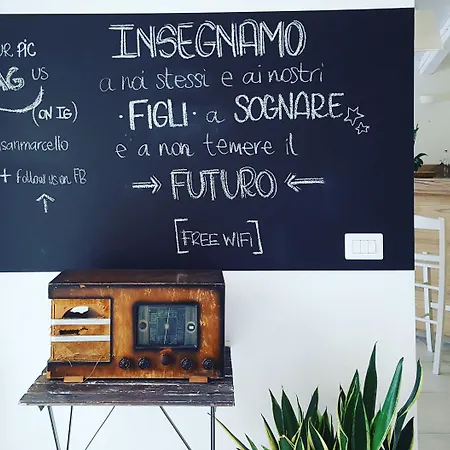 UR PIC
AG US
(ON IG)
sanmarcello
+ follow us on FB
INSEGNAMO
a noi stessi e ai nostri
·FIGLI· a SOGNARE
e a non temere il
→ FUTURO ←
[FREE WIFI]